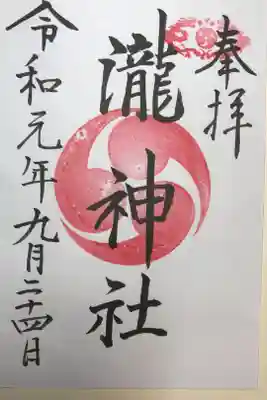 奉拝
瀧神社
令和元年九月二十四日